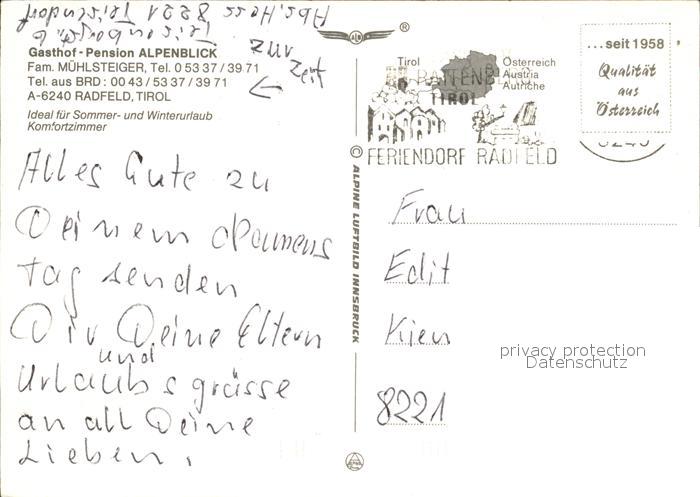 Abs. Hess 8221 Teisendorf
zur
Zeit
Gasthof - Pension ALPENBLICK
Fam. MÜHLSTEIGER, Tel. 0 53 37 / 39 71
Tel. aus BRD : 00 43 / 53 37 / 39 71
A-6240 RADFELD, TIROL
Ideal für Sommer- und Winterurlaub
Komfortzimmer
Alles Gute zu
Deinem Namens
tag senden
Dir Deine Eltern
und
Urlaubs grüsse
an all Deine
Lieben.
®
Tirol
Österreich
Austria
Autriche
TIROL
FERIENDORF RADFELD
...seit 1958
Qualität
aus
Österreich
6240
© ALPINE LUFTBILD INNSBRUCK
Frau
Edit
Kien
8221
privacy protection
Datenschutz